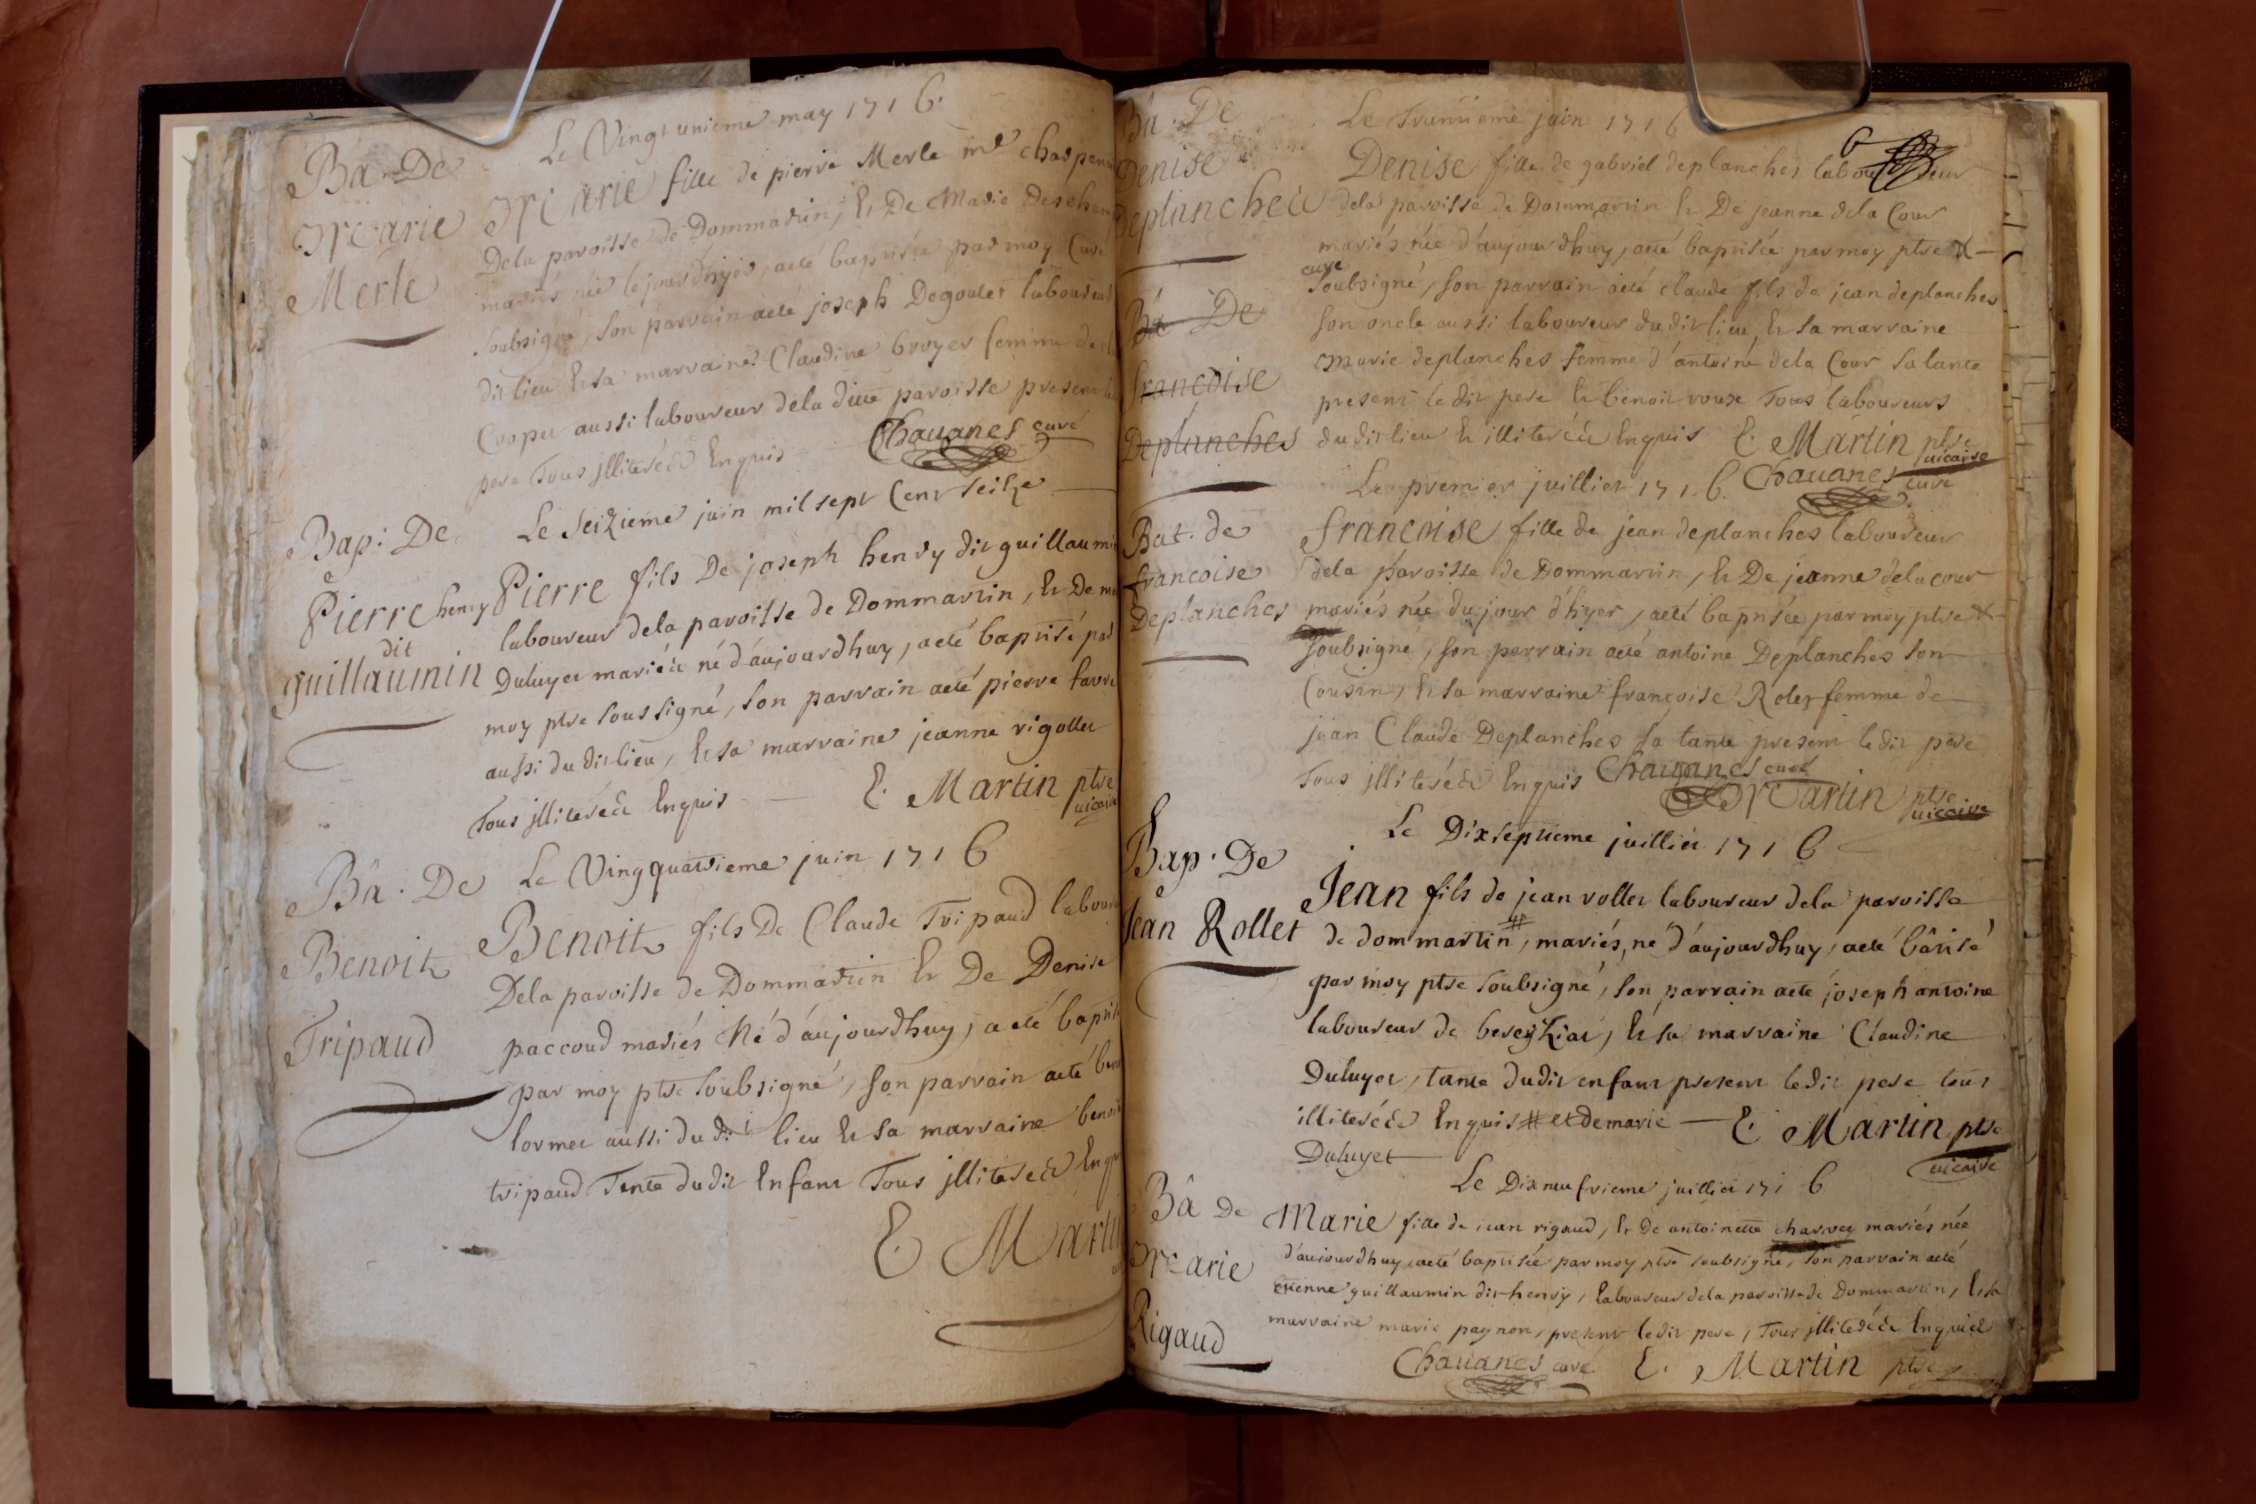 Le Vingt unieme may 1716.
Ba. De
Marie
Merle
Marie fille de pierre Merle me charpen
Dela paroisse de Dommartin, et De Marie
mariés née le jour d'hyer, aeté baptisée par moy Curé
soubsigné, son parrain aeté joseph Degoulet laboureur
dit lieu et sa marraine Claudine broyer femme de
aussi laboureur dela ditte paroisse present le
pere Tous illiterées Enquis Chauanes curé
Bap: De
Pierre henry
dit
guillaumin
Le Seizieme juin mil sept Cent seize
Pierre fils De joseph henry dit guillaumi
laboureur dela paroisse de Dommartin, et De
Duluyer mariées né d'aujourdhuy, aeté baptisé par
moy ptre soussigné, son parrain aeté pierre favre
aussi du dit lieu, et sa marraine jeanne rigollet
Tous illiterées Enquis E. Martin ptre
uicaire
Bâ. De
Benoit
Tripaud
Le Vingquatrieme juin 1716
Benoit fils De Claude Tripaud labour
Dela paroisse de Dommartin et De Denise
paccoud mariés Né d'aujourdhuy, a eté baptisé
par moy ptre soubsigné, son parrain aeté ben
lormet aussi du dit lieu et sa marraine benoit
tripaud Tente dudit Enfant Tous illiterées Enqu
E. Marti
6
Ba. De
Denise
Deplanches
Le Trentieme juin 1716
Denise fille de gabriel deplanches laboureur
dela paroisse de Dommartin et De jeanne dela Cour
mariés née d'aujourdhuy, aeté baptisée par moy ptre &
curé
soubsigné, son parrain aeté claude fils de jean deplanches
son oncle aussi laboureur dudit lieu, et sa marraine
Marie deplanches femme d'antoine dela Cour sa tante
present le dit pere et benoit roux Tous laboureurs
dudit lieu et illiterées Enquis E. Martin ptre
uicaire
Chauanes curé
Ba De
françoise
Deplanches
Bat. de
francoise
Deplanches
Le premier juillet 1716.
francoise fille de jean deplanches laboureur
dela paroisse de Dommartin, et De jeanne delacour
mariés née du jour d'hyer, aeté baptisée par moy ptre &
soubsigné, son parrain aeté antoine Deplanches son
Cousin, et sa marraine françoise Rolet femme de
jean Claude Deplanches sa tante present le dit pere
Tous illiterées Enquis Chauanes curé
Martin ptre
uicaire
Bap. De
Jean Rollet
Le Dixseptieme juillet 1716
Jean fils de jean rollet laboureur dela paroisse
de dommartin #, mariés, né d'aujourdhuy, aeté bâtisé
par moy ptre soubsigné, son parrain aeté joseph antoine
laboureur de bereyziat, et sa marraine Claudine
Duluyet, tante dudit enfant present ledit pere tous
illiterées Enquis # et de marie — E. Martin ptre
Duluyet
uicaire
Bâ De
Marie
Rigaud
Le Dixneufvieme juillet 1716
Marie fille de jean rigaud, et De antoinette charvet mariés née
d'aujourdhuy, aeté baptisée par moy ptre soubsigné, son parrain aeté
etienne guillaumin dit henry, laboureur dela paroisse de Dommartin, et sa
marraine marie pagnon, present ledit pere, Tous illiterées Enquis
Chauanes curé E. Martin ptre